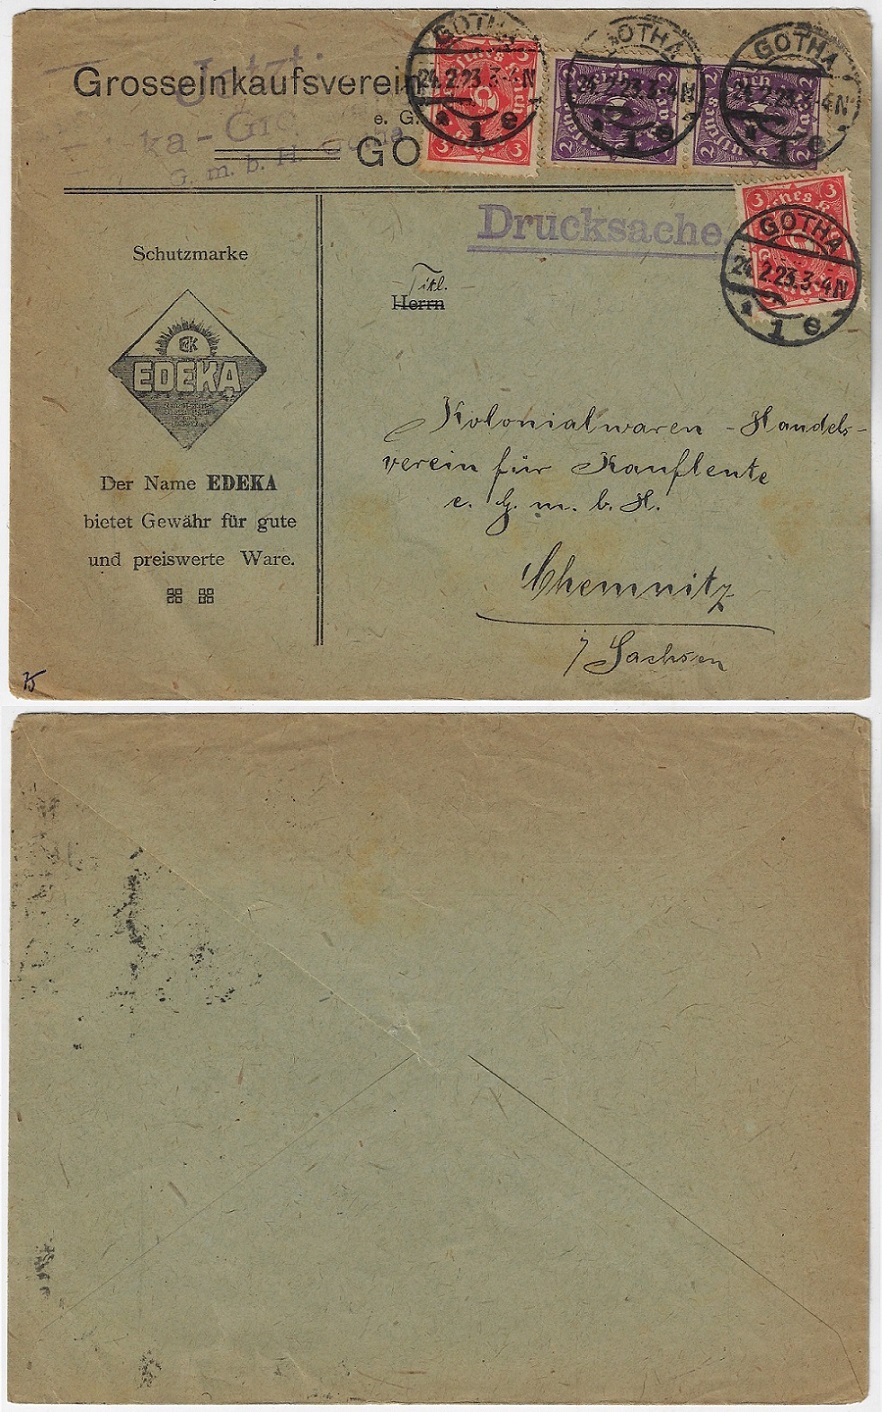 Jetzt:
Grosseinkaufsverein
e. G.
GO
G. m. b. H. Gotha
GOTHA
24.2.23.3-4N
* 1 e
GOTHA
24.2.23.3-4N
* 1 e
GOTHA
24.2.23.3-4N
* 1 e
GOTHA
24.2.23.3-4N
* 1 e
3
3
2
2
2
2
3
3
Drucksache.
Schutzmarke
EDEKA
Der Name EDEKA
bietet Gewähr für gute
und preiswerte Ware.
Titl.
Herrn
Kolonialwaren - Handels-
verein für Kaufleute
e. G. m. b. H.
Chemnitz
i/ Sachsen